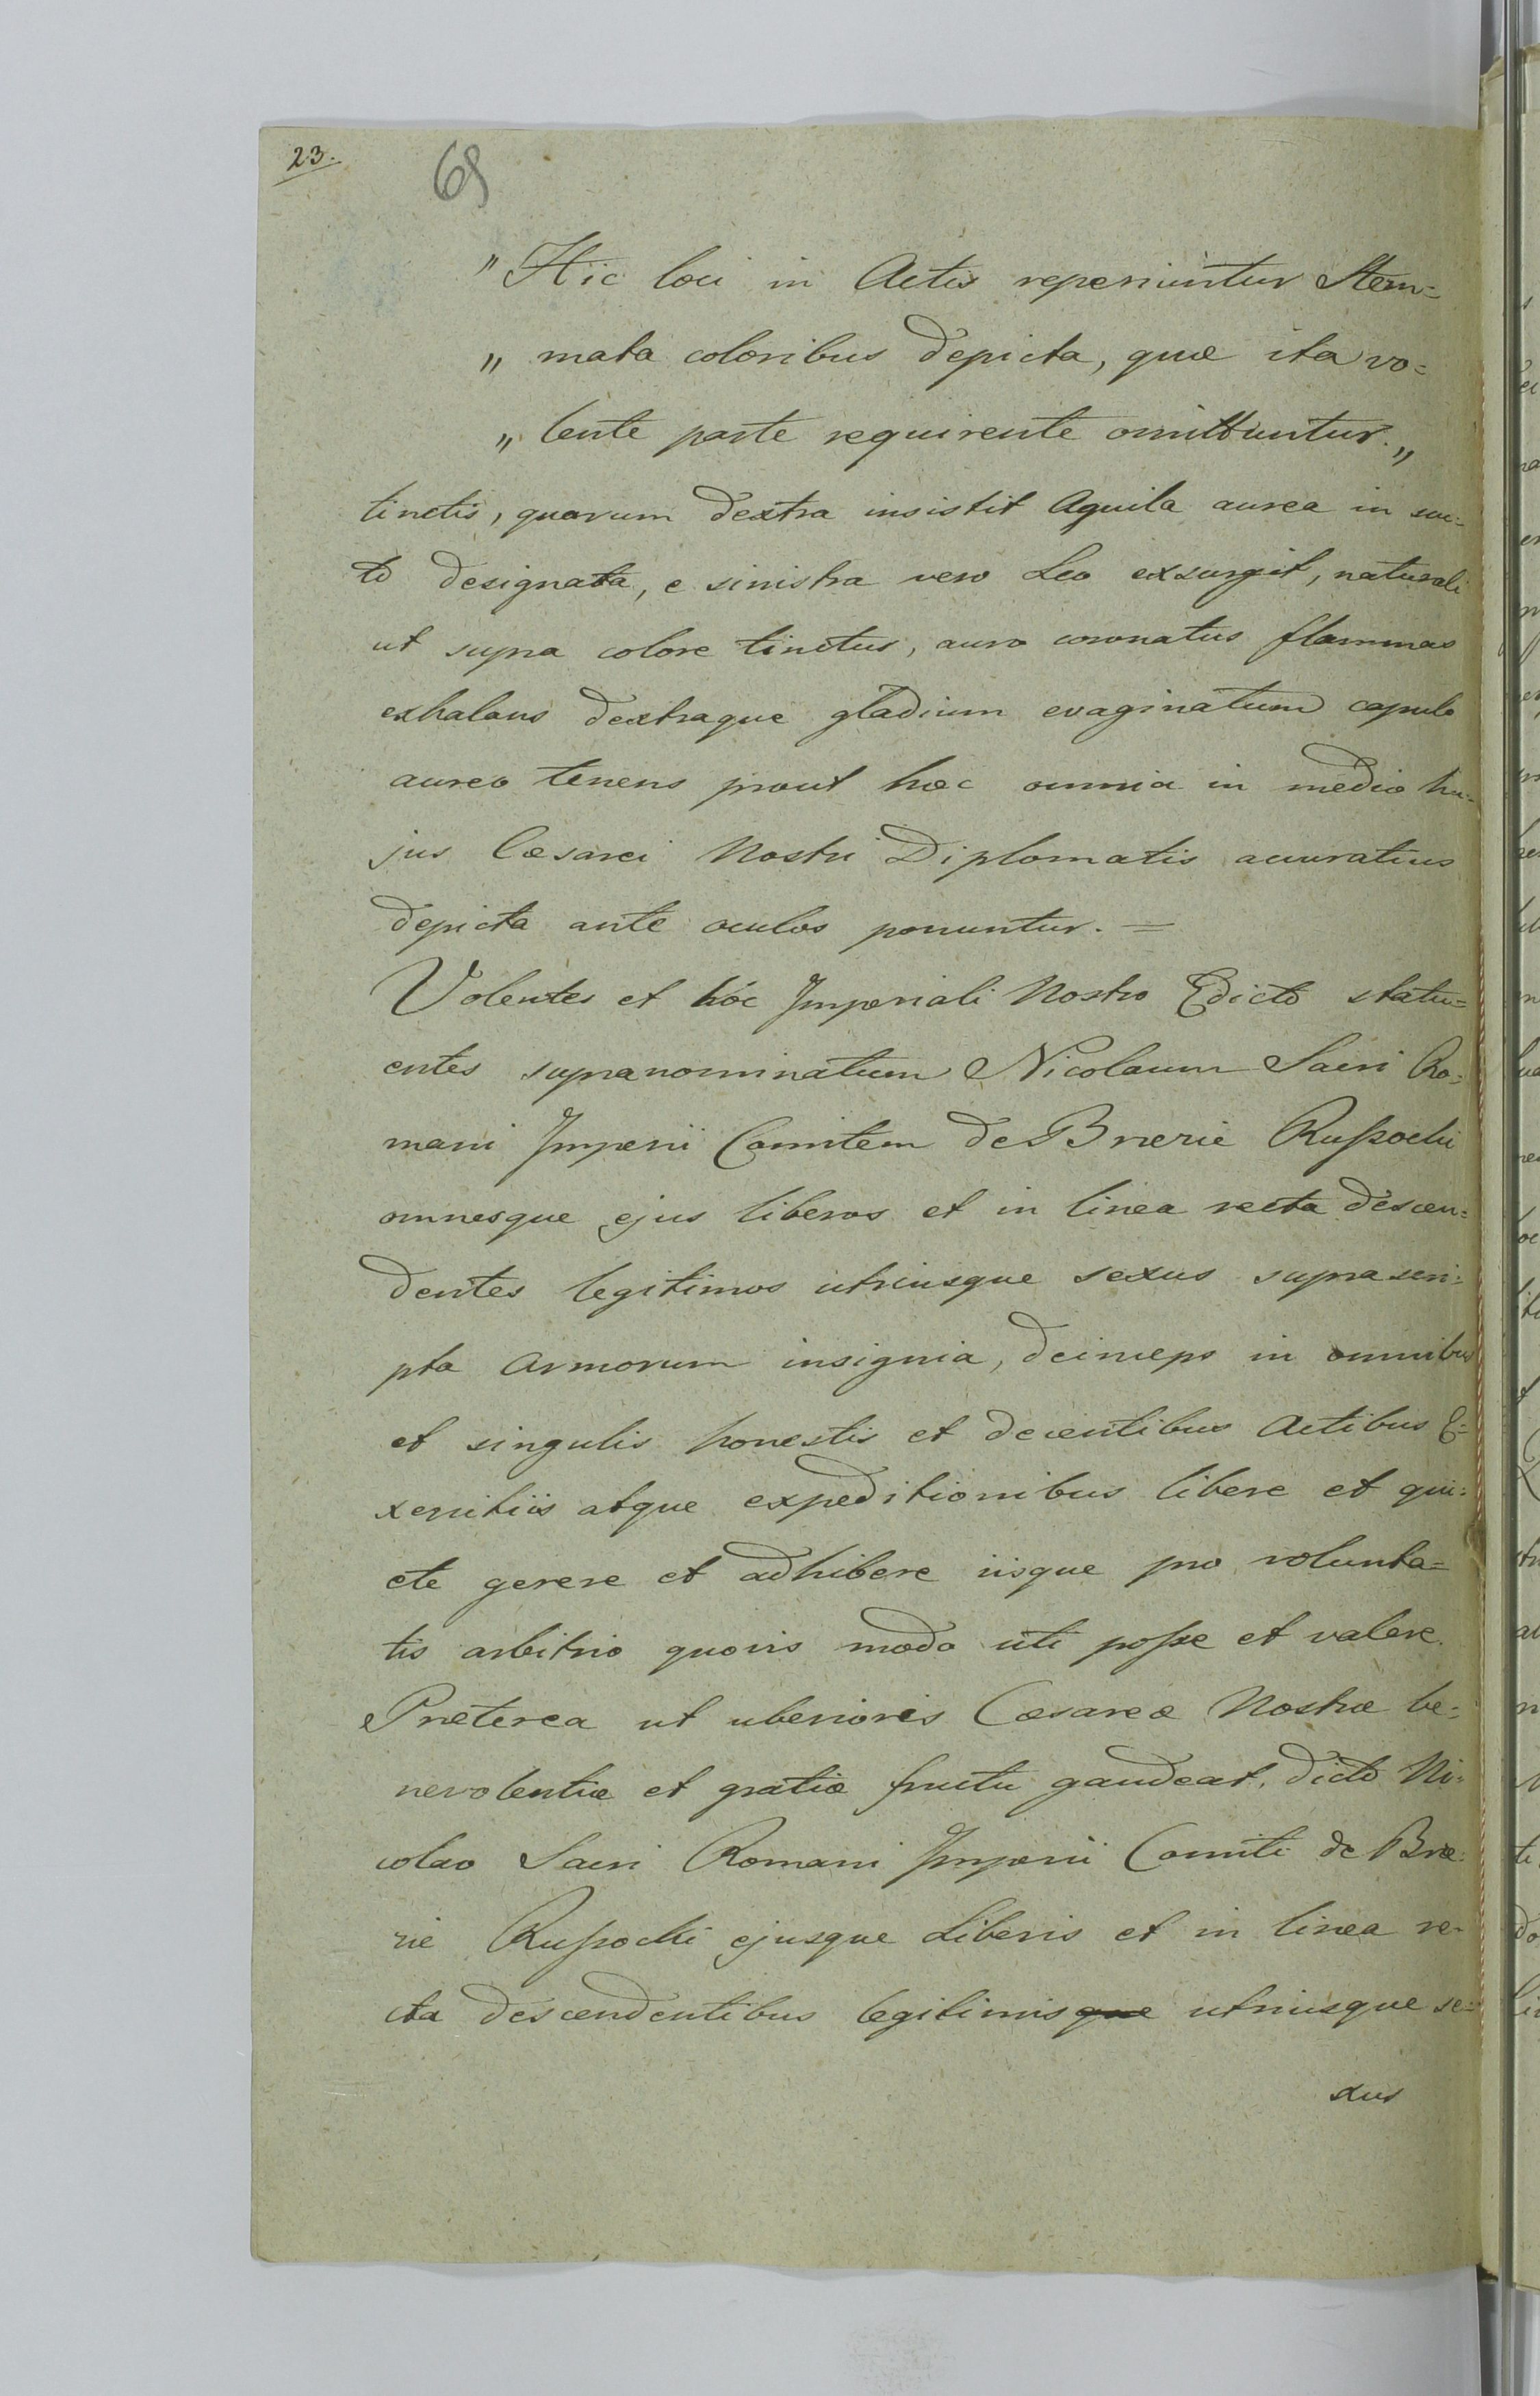 23.
69
"Hic loci in Actis reperiuntur Stem=
„ mata coloribus depicta, quæ ita vo=
„ lente parte requirente omittuntur.„
tinctis, quarum dextra insistit Aquila aurea in scu=
to designata, e sinistra vero Leo exsurgit, naturali
ut supra colore tinctus, auro coronatus flammas
exhalans dextraque gladium evaginatum capulo
aureo tenens prout hæc omnia in medio hu=
jus Cæsarei Nostri Diplomatis accuratius
depicta ante oculos ponuntur. =
Volentes et hôc Imperiali Nostro Edicto statu=
entes supranominatum Nicolaum Sacri Ro=
mani Imperii Comitem de Brzezie Rußocki
omnesque ejus liberos et in linea recta descen=
dentes legitimos utriusque sexus suprascri=
pta Armorum insignia, deinceps in omnibus
et singulis honestis et decentibus Actibus E=
xercitiis atque expeditionibus libere et qui=
ete gerere et adhibere iisque pro volunta=
tis arbitrio quovis modo uti poße et valere.
Præterea ut uberioris Cæsareæ Nostræ be=
nevolentiæ et gratiæ fructu gaudeat, dicto Ni=
colao Sacri Romani Imperii Comiti de Brze=
zie Rußocki ejusque Liberis et in linea re=
cta descendentibus legitimisque utriusque se=
xus